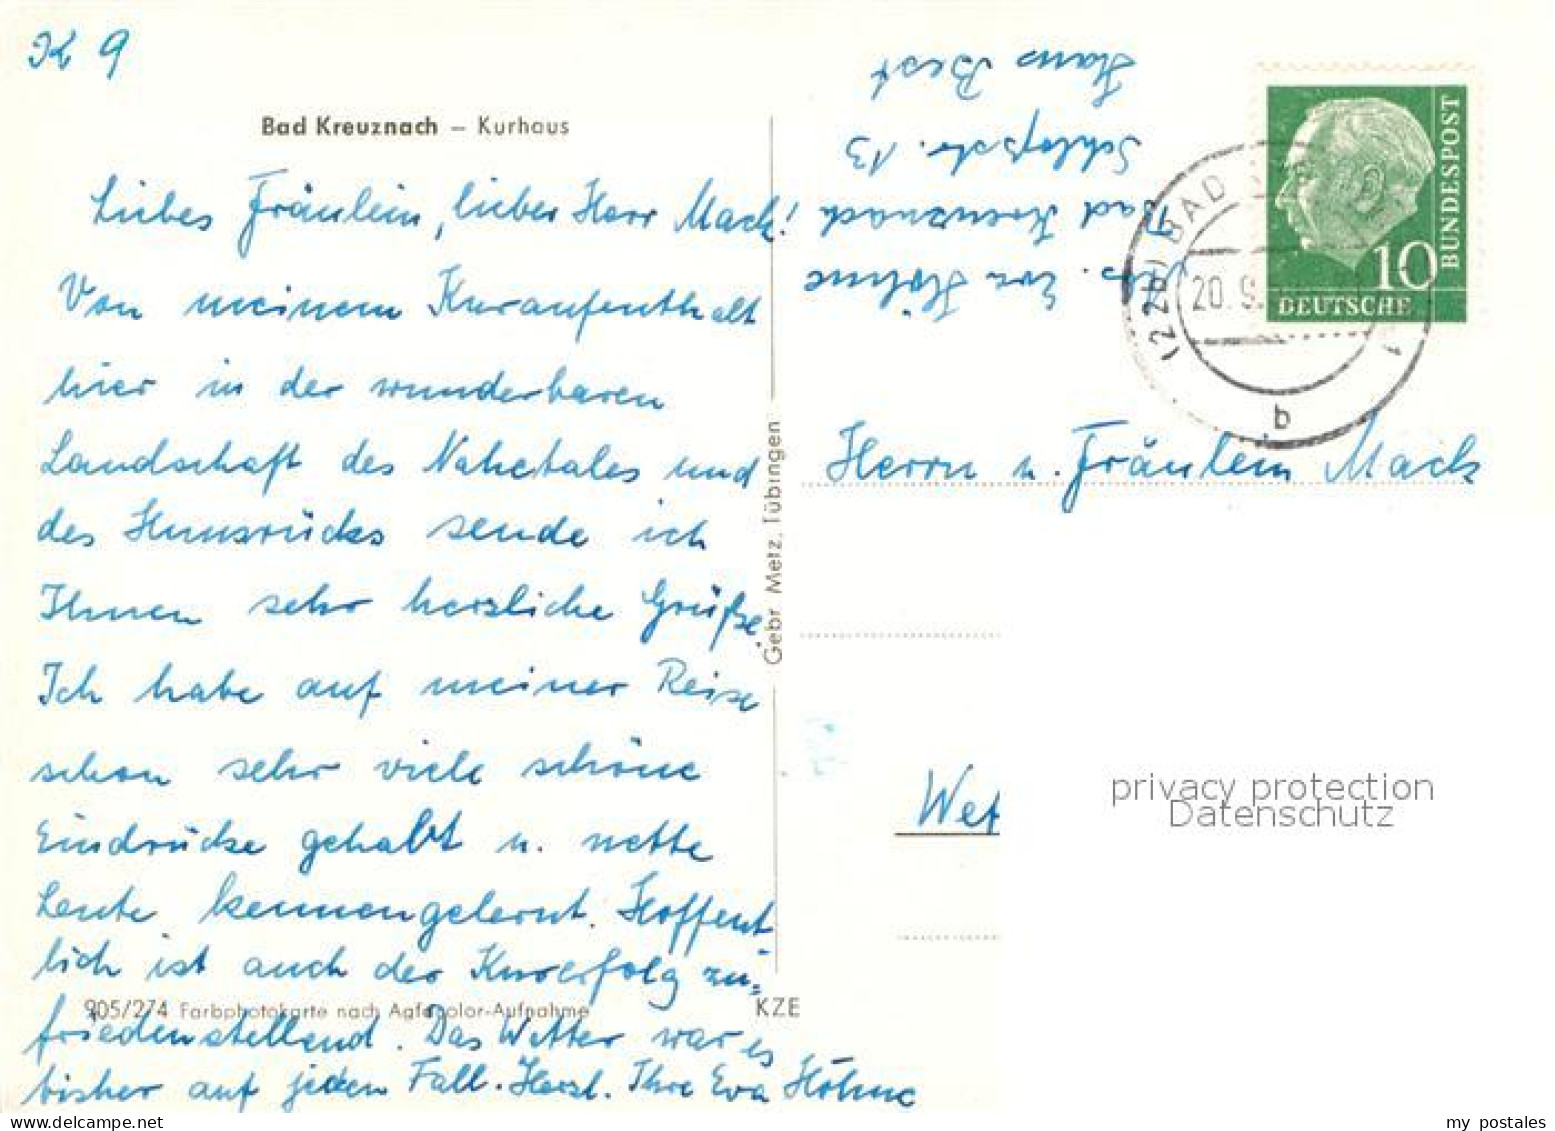 K 9
Bad Kreuznach – Kurhaus
Liebes Fräulein, lieber Herr Mack!
Von meinem Kuraufenthalt
hier in der wunderbaren
Landschaft des Nahetales und
des Hunsrücks sende ich
Ihnen sehr herzliche Grüße.
Ich habe auf meiner Reise
schon sehr viele schöne
Eindrücke gehabt u. nette
Leute kennengelernt. Hoffent-
lich ist auch der Kurerfolg zu-
friedenstellend. Das Wetter war es
bisher auf jeden Fall. Herzl. Ihre Eva Höhne
905/274 Farbphotokarte nach Agfacolor-Aufnahme
KZE
Gebr. Metz, Tübingen
Abs. Eva Höhne
Bad Kreuznach
Schloßstr. 13
Haus Best
BUNDESPOST
10
DEUTSCHE
(22b) BAD
20. 9.
1
b
Herrn u. Fräulein Mack
Wet
privacy protection
Datenschutz
my postales